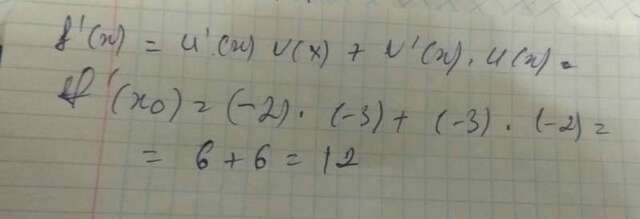 f'(x) = u'(x) v(x) + v'(x) · u(x) =
f'(x₀) = (-2) · (-3) + (-3) · (-2) =
= 6 + 6 = 12